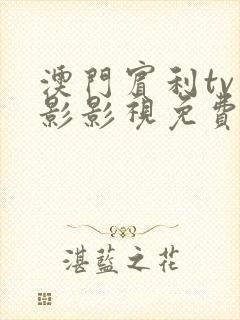 澳門賓利tv
影影視免費
湛藍之花